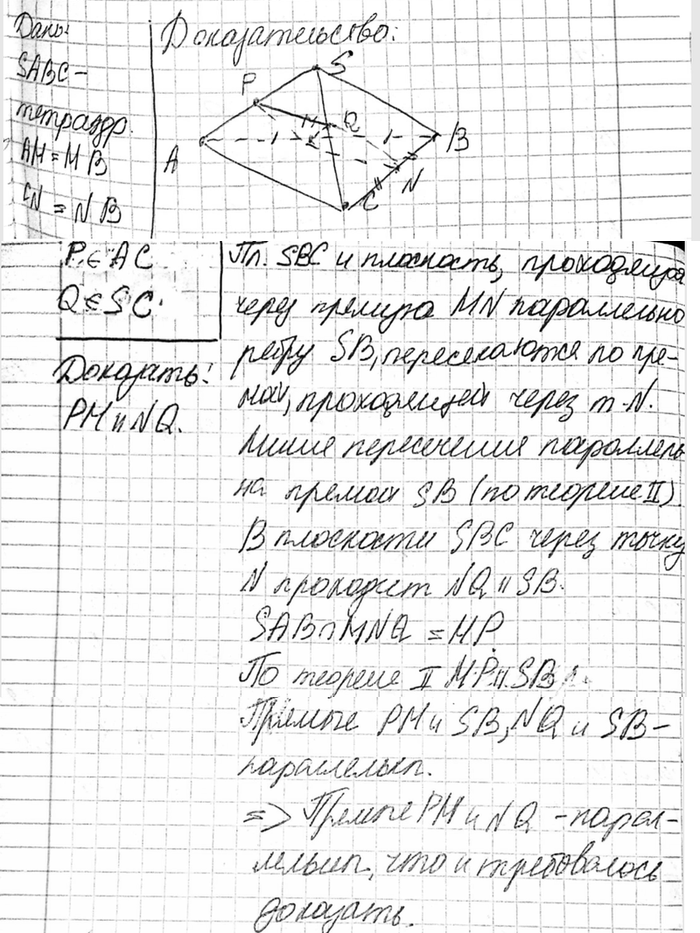 Дано:
SABC –
тетраэдр.
AM = MB
CN = NB
Доказательство:
S
P
M
Q
A
B
N
C
P ∈ AC
Q ∈ SC
Доказать:
PM и NQ.
Пл. SBC и плоскость, проходящая
через прямую MN параллельно
ребру SB, пересекаются по пря-
мой, проходящей через т. N.
Линия пересечения параллель-
на прямой SB (по теореме II).
В плоскости SBC через точку
N проходит NQ || SB.
SAB ∩ MNQ = MP
По теореме II MP || SB
Прямые PM и SB, NQ и SB –
параллельны.
=> Прямые PM и NQ – парал-
лельны, что и требовалось
доказать.